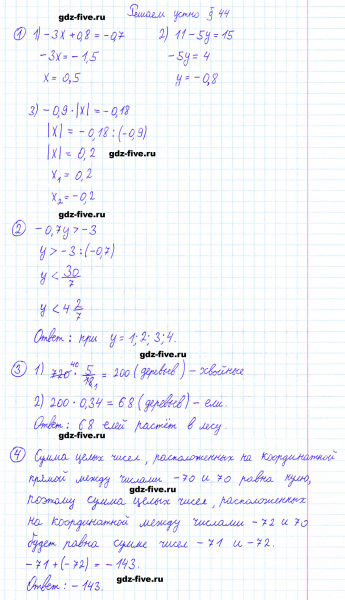 Решаем устно § 44
gdz-five.ru
① 1) -3x + 0,8 = -0,7  2) 11 - 5y = 15
-3x = -1,5  -5y = 4
x = 0,5  y = -0,8
gdz-five.ru
3) -0,9 · |x| = -0,18
|x| = -0,18 : (-0,9)
|x| = 0,2
gdz-five.ru
x₁ = 0,2
x₂ = -0,2
gdz-five.ru
② -0,7y > -3
y > -3 : (-0,7)
gdz-five.ru
y < 30/7
y < 4 2/7
gdz-five.ru
Ответ: при y = 1; 2; 3; 4.
gdz-five.ru
③ 1) 720 40 · 5/18 1 = 200 (деревьев) - хвойные
2) 200 · 0,34 = 68 (деревьев) - ели.
gdz-five.ru
Ответ: 68 елей растёт в лесу.
gdz-five.ru
④ Сумма целых чисел, расположенных на координатной
прямой между числами -70 и 70 равна нулю,
gdz-five.ru
поэтому сумма целых чисел, расположенных
на координатной между числами -72 и 70
gdz-five.ru
будет равна сумме чисел -71 и -72.
-71 + (-72) = -143.
gdz-five.ru
Ответ: -143.